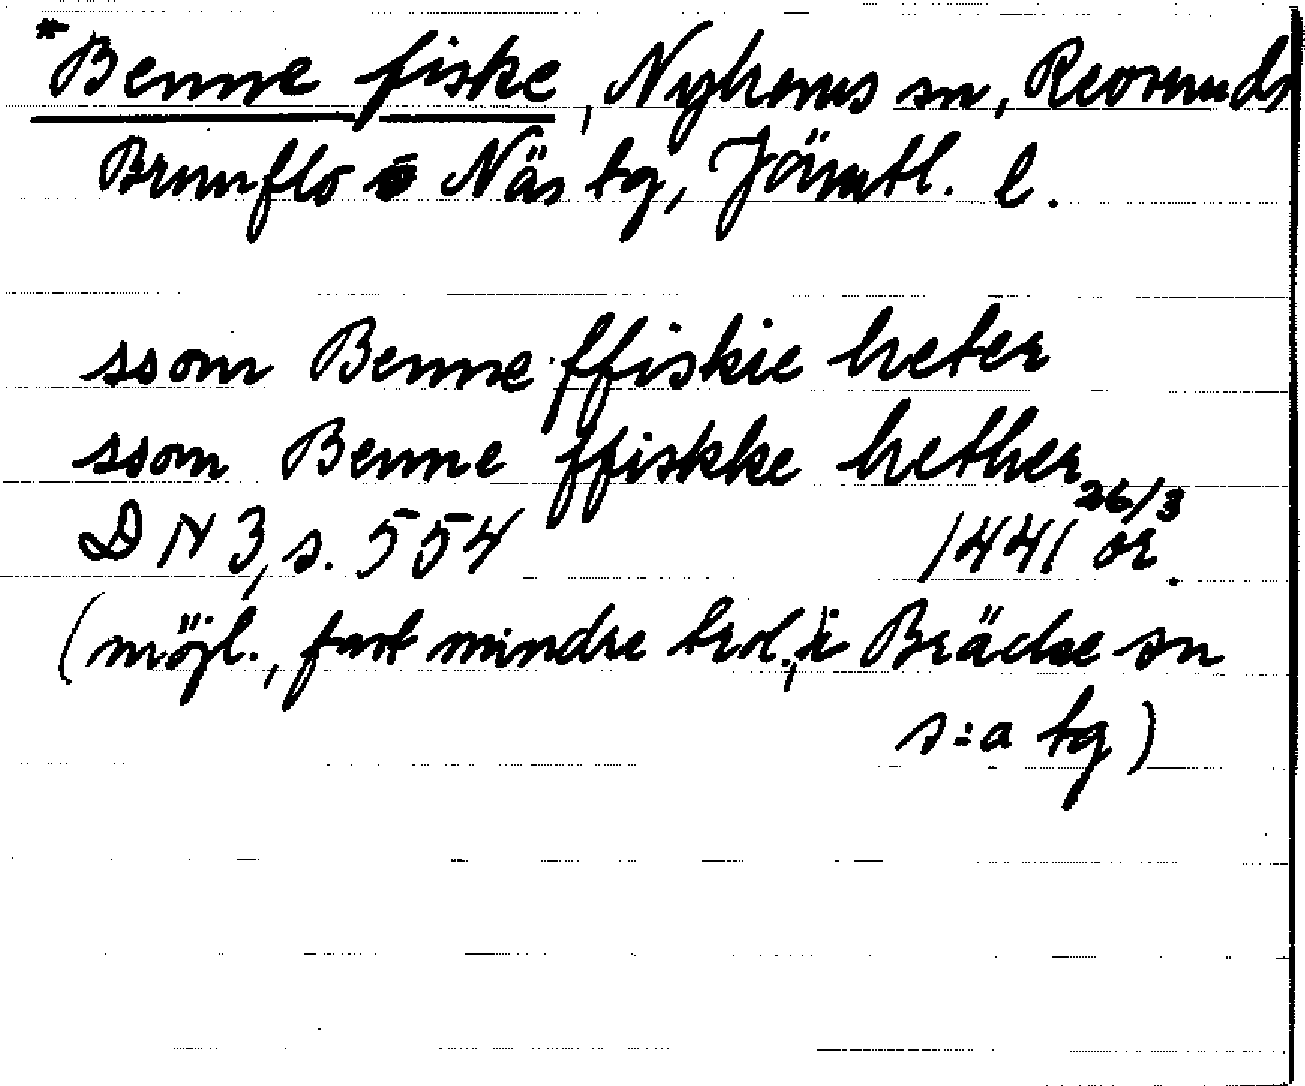 *Benne fiske, Nyhems sn, Revsunds
Brunflo o Näs tg, Jämtl. l.
ssom Benne ffiskie heter
ssom Benne ffiskke hether
DN 3, s. 554 1441 26/3 or.
(möjl., fast mindre trol., i Bräcke sn
s:a tg)